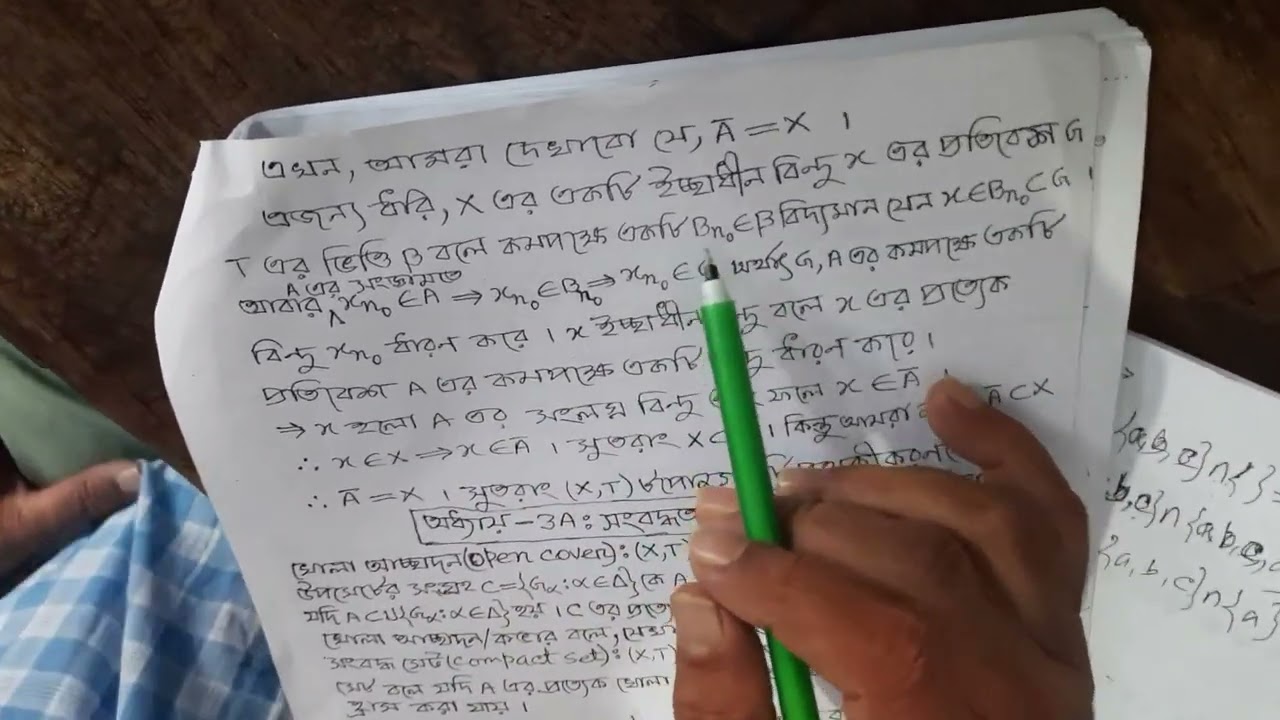 এখন, আমরা দেখাবো যে, Ā = X ।
এজন্য ধরি, X এর একটি ইচ্ছাধীন বিন্দু x এর প্রতিবেশ G.
T এর ভিত্তি β বলে কমপক্ষে একটি Bn₀∈β বিদ্যমান যেন x∈Bn₀⊂G ।
A এর সংজ্ঞামতে
আবার ʌ xn₀∈A ⇒ xn₀∈Bn₀ ⇒ xn₀∈ অর্থাৎ G, A এর কমপক্ষে একটি
বিন্দু xn₀ ধারন করে । x ইচ্ছাধীন বলে x এর প্রত্যেক
প্রতিবেশ A এর কমপক্ষে একটি ধারন করে ।
⇒ x হলো A এর সংলগ্ন বিন্দু ফলে x∈Ā
∴ x∈X ⇒ x∈Ā । সুতরাং X । কিন্তু আমরা Ā⊂X
∴ Ā = X । সুতরাং (X,T)
অধ্যায় - 3A: সংবদ্ধত
খোলা আচ্ছাদন (Open cover): (X,T)
উপসেটের সংগ্রহ C={Gα:α∈Δ} কে A
যদি A⊂∪{Gα:α∈Δ} হয় । C এর প্রত্যে
খোলা আচ্ছাদন/কভার বলে,
সংবদ্ধ সেট (compact set): (X,T)
সেট বলে যদি A এর প্রত্যেক খোলা
হ্রাস করা যায় ।
{a,b,c}∩{ }=
b,c}∩{a,b,c,
{a,b,c}∩{a}